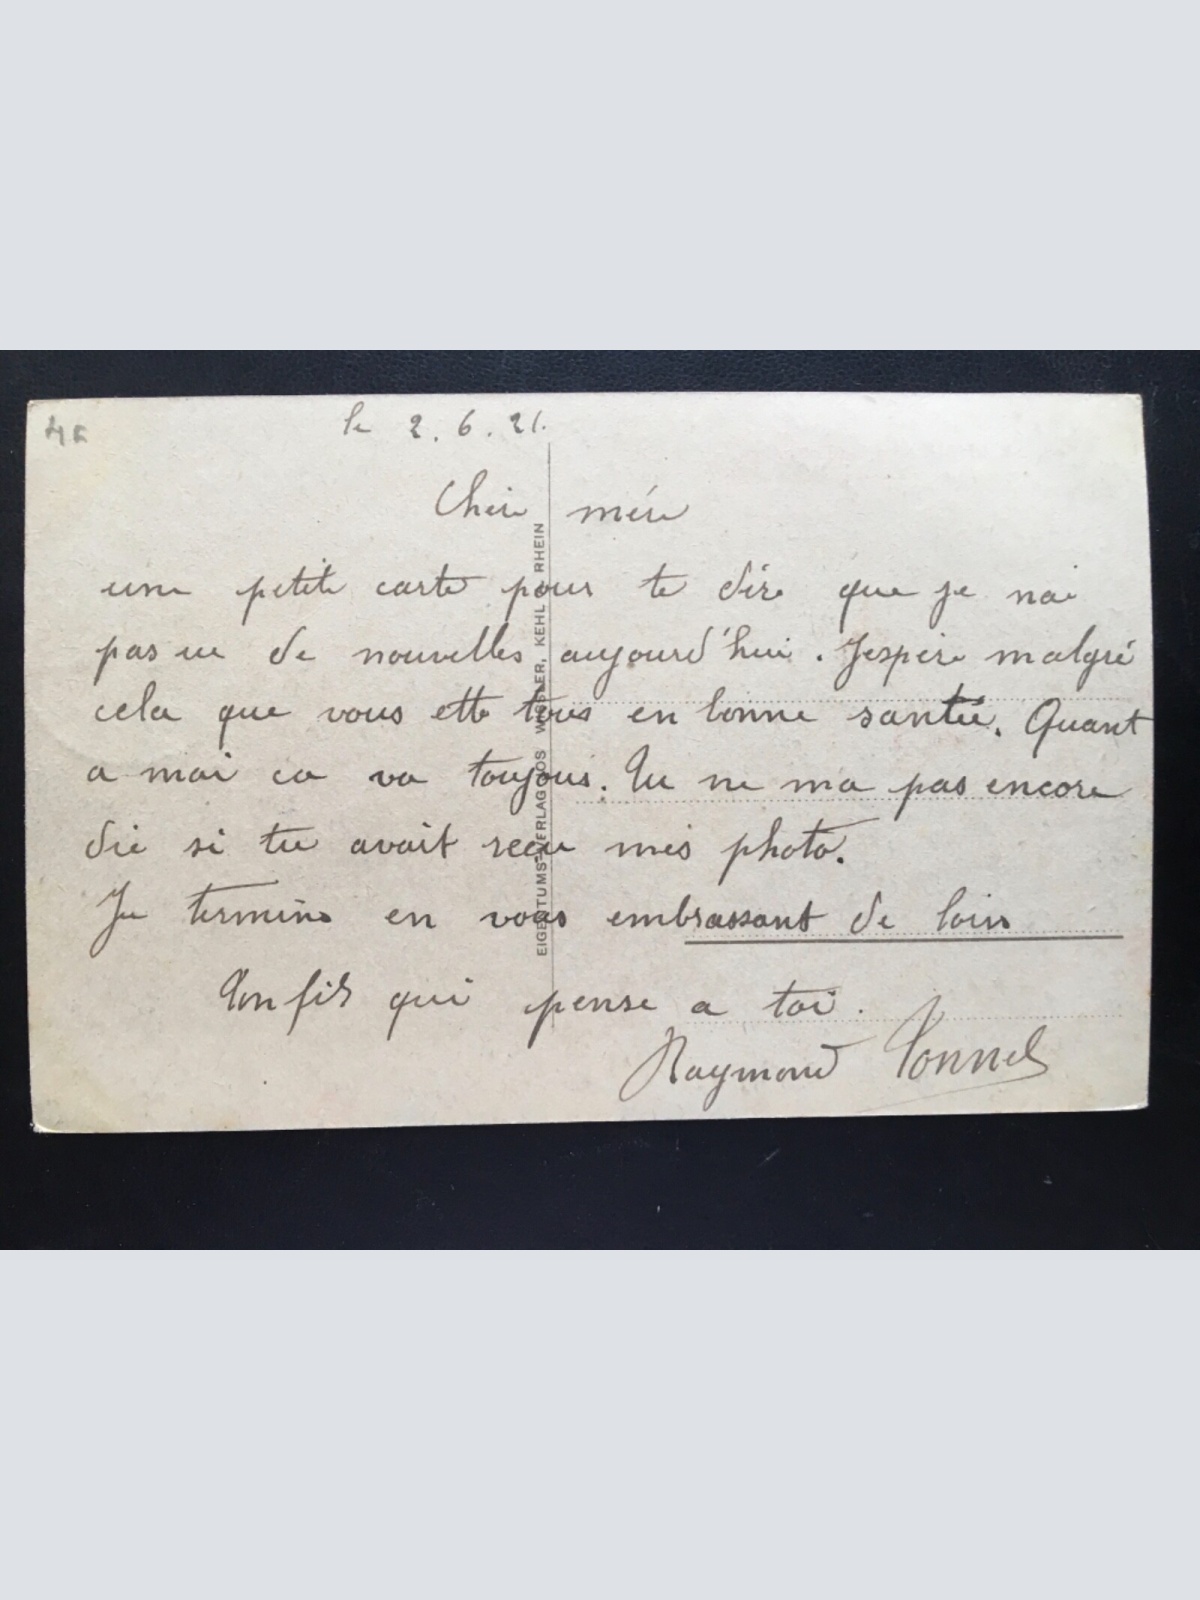 le 2.6.21.
Chère mère
une petite carte pour te dire que je nai
pas ue de nouvelles aujourd'hui. Jespère malgré
cela que vous ette tous en bonne santée. Quant
a moi ca va toujous. Tu ne ma pas encore
die si tu avait recu mes photo.
Je termine en vous embrassant de loin
Ton fils qui pense a toi.
Raymond
EIGENTUMS-VERLAG JOS WISSLER, KEHL RHEIN